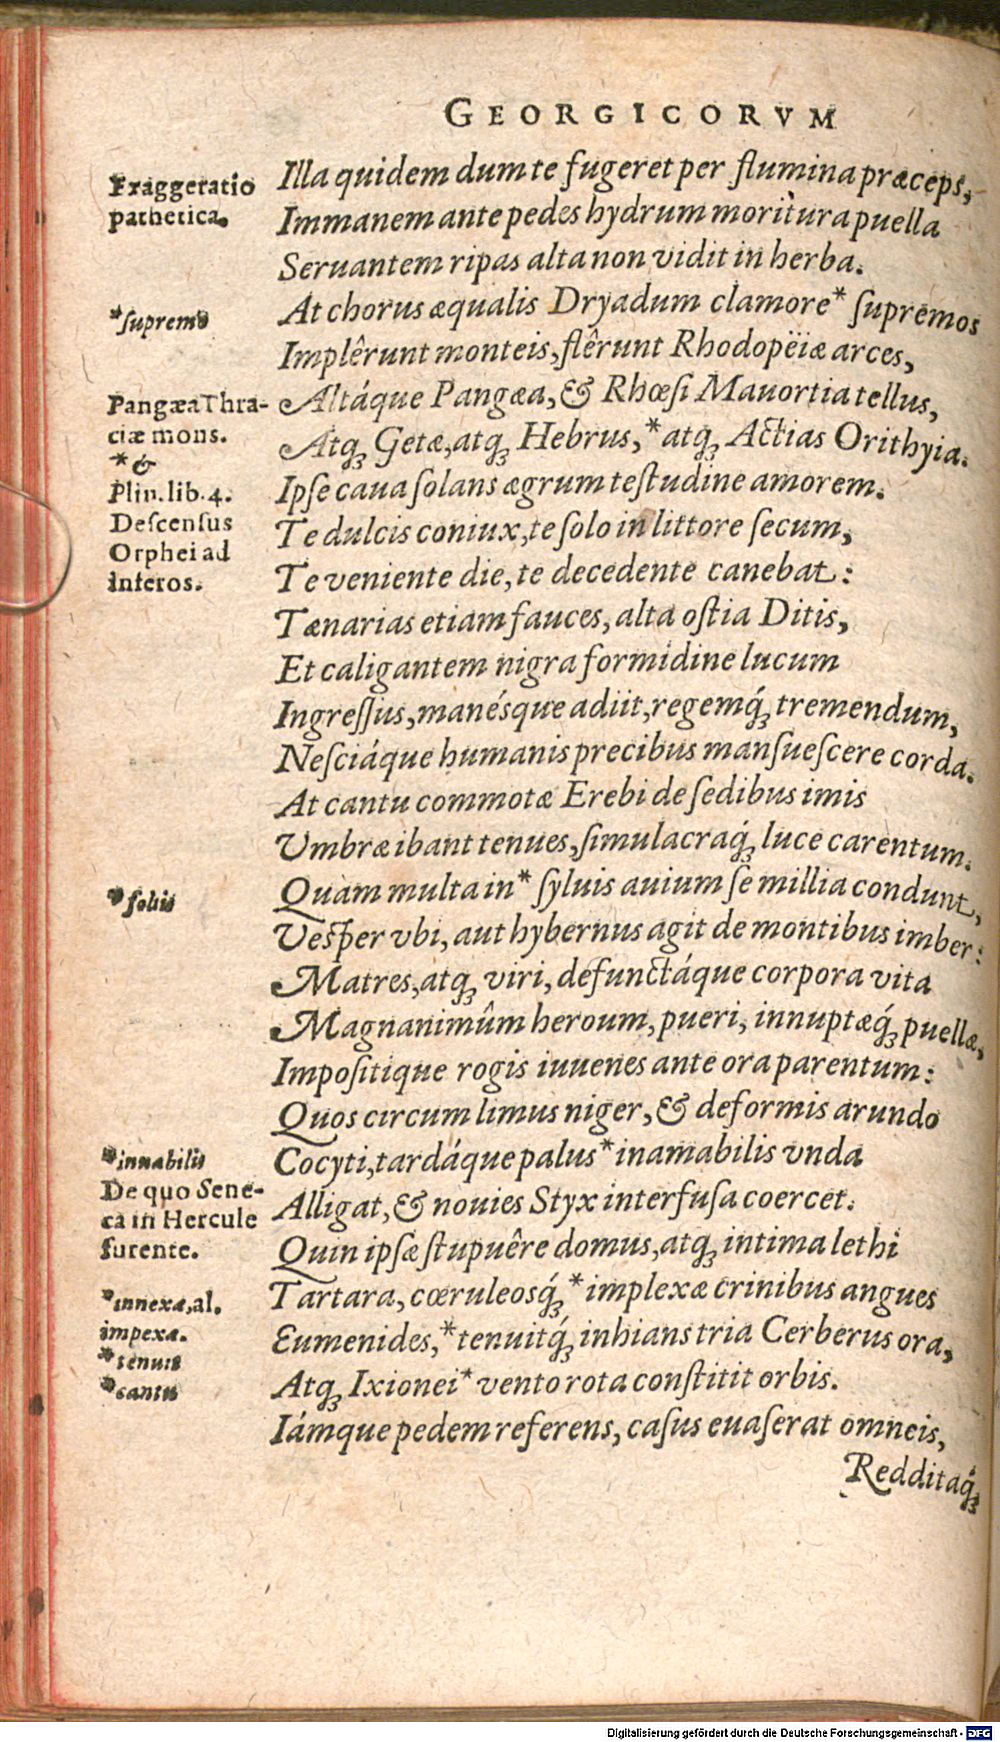 GEORGICORVM
Exaggeratio
pathetica.
*supremo
Pangæa Thra-
ciæ mons.
*&
Plin. lib. 4.
Descensus
Orphei ad
inferos.
*foliis
*innabilis
De quo Sene-
ca in Hercule
furente.
*innexæ, al.
impexæ.
*tenuis
*cantu
Illa quidem dum te fugeret per flumina præceps,
Immanem ante pedes hydrum moritura puella
Seruantem ripas alta non vidit in herba.
At chorus æqualis Dryadum clamore* supremos
Implêrunt monteis, flêrunt Rhodopëiæ arces,
Altáque Pangæa, & Rhœsi Mauortia tellus,
Atq; Getæ, atq; Hebrus, *atq; Actias Orithyia.
Ipse caua solans ægrum testudine amorem.
Te dulcis coniux, te solo in littore secum,
Te veniente die, te decedente canebat:
Tænarias etiam fauces, alta ostia Ditis,
Et caligantem nigra formidine lucum
Ingressus, manésque adiit, regemq́; tremendum,
Nesciáque humanis precibus mansuescere corda.
At cantu commotæ Erebi de sedibus imis
Vmbræ ibant tenues, simulacraq́; luce carentum.
Quàm multa in* syluis auium se millia condunt,
Vesper vbi, aut hybernus agit de montibus imber:
Matres, atq; viri, defunctáque corpora vita
Magnanimûm heroum, pueri, innuptæq́; puellæ,
Impositique rogis iuuenes ante ora parentum:
Quos circum limus niger, & deformis arundo
Cocyti, tardáque palus* inamabilis vnda
Alligat, & nouies Styx interfusa coercet.
Quin ipsæ stupuêre domus, atq; intima lethi
Tartara, cœruleosq́; *implexæ crinibus angues
Eumenides, *tenuitq́; inhians tria Cerberus ora,
Atq; Ixionei* vento rota constitit orbis.
Iámque pedem referens, casus euaserat omneis,
Redditaq́;
Digitalisierung gefördert durch die Deutsche Forschungsgemeinschaft - DFG